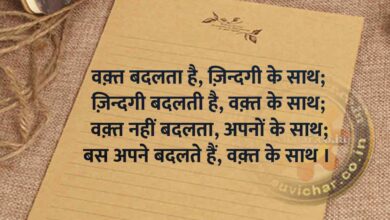 वक़्त बदलता है, ज़िन्दगी के साथ;
ज़िन्दगी बदलती है, वक़्त के साथ;
वक़्त नहीं बदलता, अपनों के साथ;
बस अपने बदलते हैं, वक़्त के साथ ।
suvichar.co.in